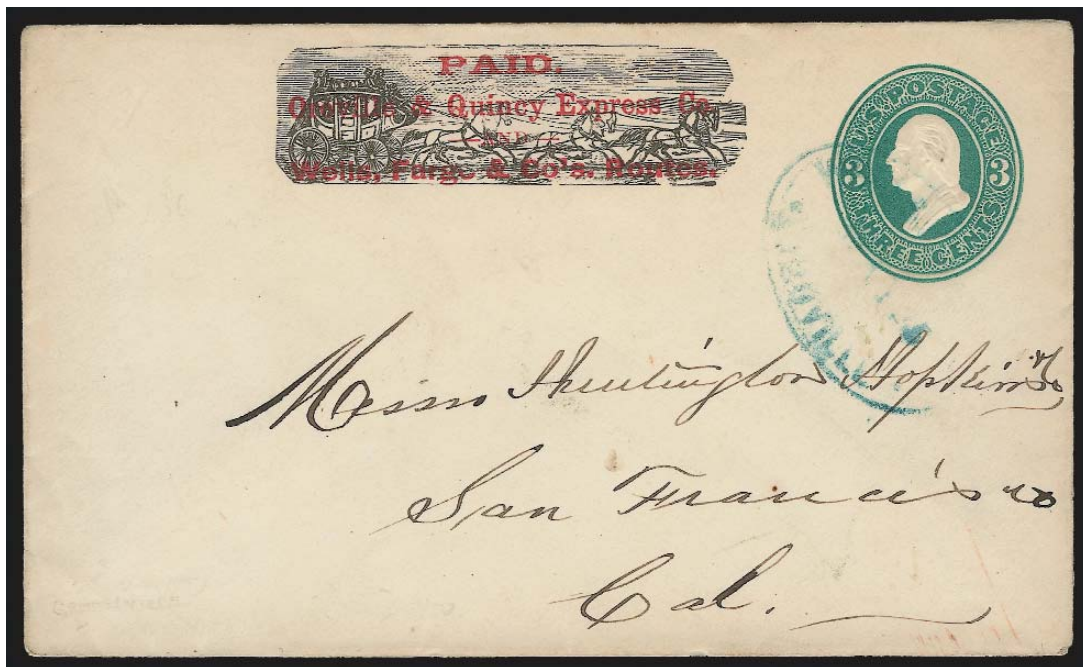 PAID.
Oroville & Quincy Express Co.
AND
Wells, Fargo & Co's. Routes.
U.S. POSTAGE
3 3
THREE CENTS
Messrs Huntington Hopkins & Co
San Francisco
Cal.